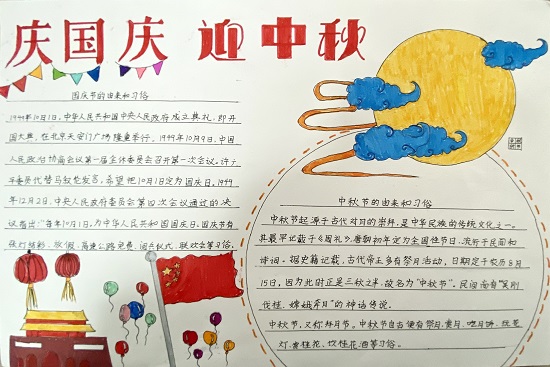 庆国庆 迎中秋
国庆节的由来和习俗
1949年10月1日,中华人民共和国中央人民政府成立典礼,即开
国大典,在北京天安门广场隆重举行。1949年10月9日,中国
人民政协商会议第一届全体委员会召开第一次会议。许广
平委员代替马叙伦发言,希望把10月1日定为国庆日。1949
年12月2日,中央人民政府委员会第四次会议通过的决
议指出:"每年10月1日,为中华人民共和国国庆日。国庆节有
张灯结彩、放假、高速公路免费、阅兵仪式、联欢会等习俗。
中秋节的由来和习俗
中秋节起源于古代对月的崇拜,是中华民族的传统文化之一。
其最早记载于《周礼》,唐朝初年定为全国性节日,流行于民间和
诗词。据史籍记载,古代帝王多有祭月活动,日期定于农历8月
15日,因为此时正是三秋之半,故名为"中秋节"。民间而有"吴刚
伐桂、嫦娥奔月"的神话传说。
中秋节,又称拜月节。中秋节自古便有祭月、赏月、吃月饼、玩花
灯、赏桂花、饮桂花酒等习俗。